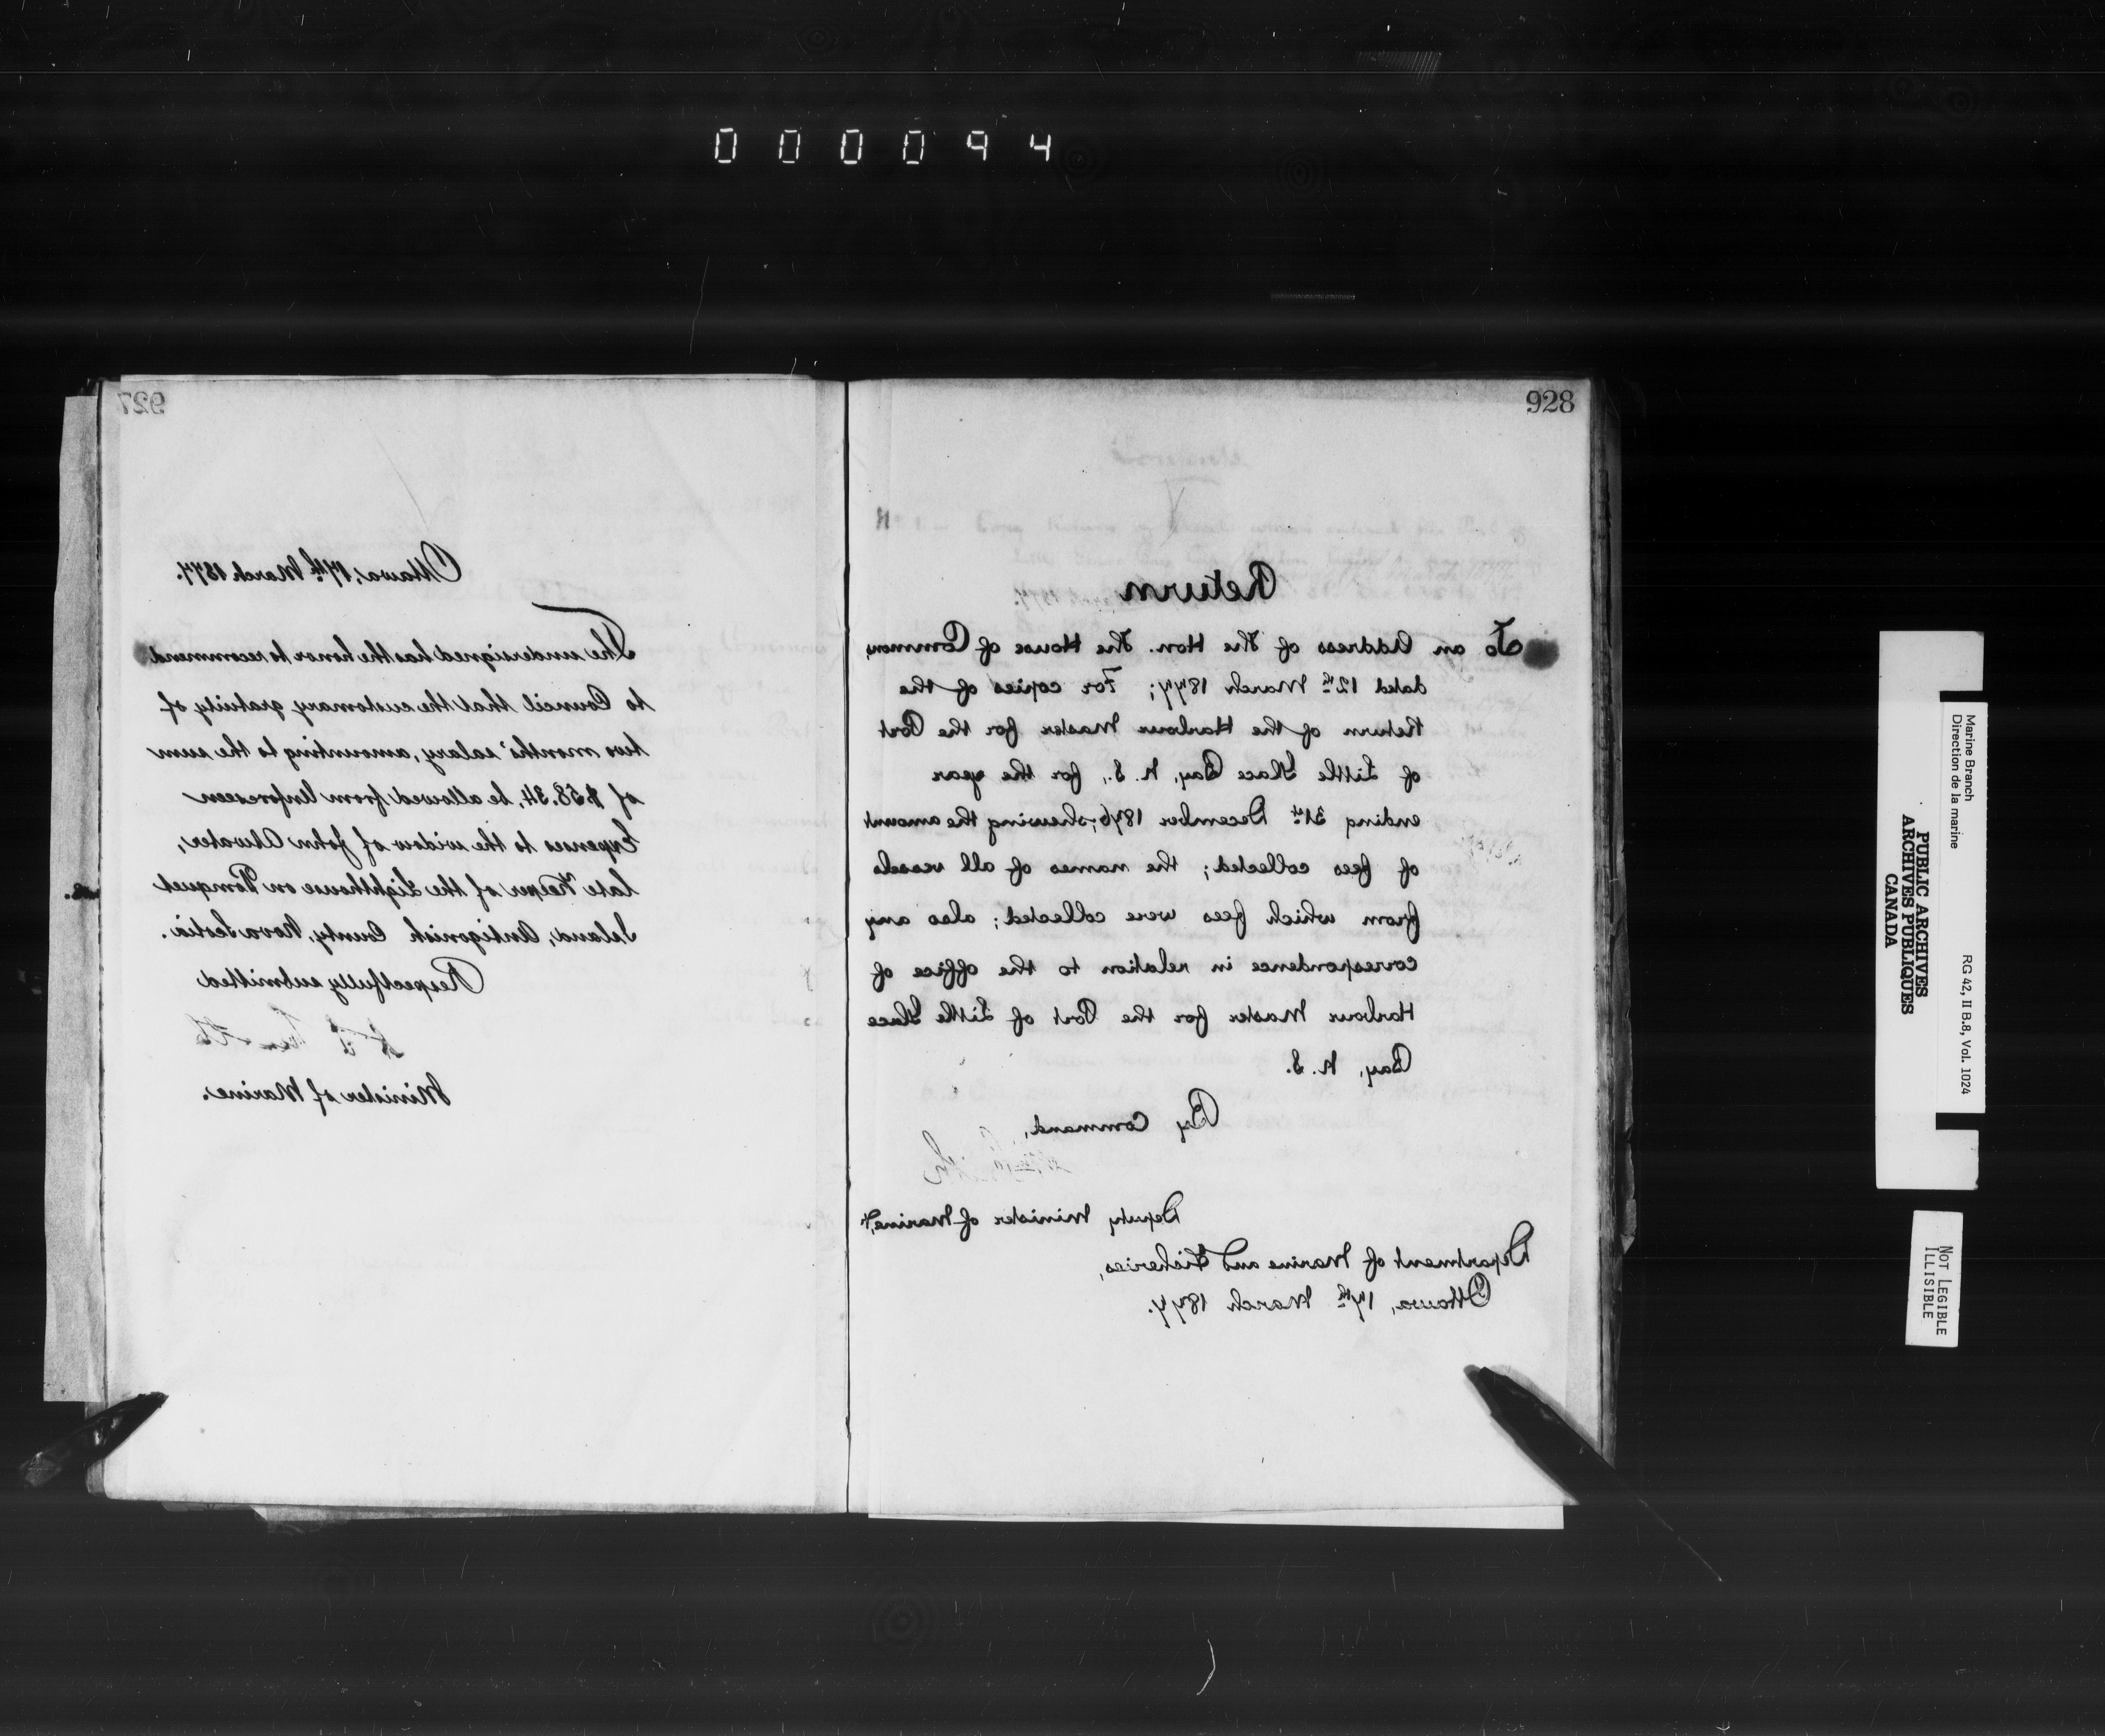 000094
927
Ottawa, 17th March 1877.
The undersigned has the honor to recommend
to Council that the customary gratuity of
two months' salary, amounting to the sum
of $58.34, be allowed from Unforeseen
Expenses to the widow of John Atwater,
late Keeper of the Lighthouse on Pomquet
Island, Antigonish County, Nova Scotia.
Respectfully submitted
Minister of Marine.
928
Return
To an Address of the Hon. the House of Commons,
dated 12th March 1877; For copies of the
Return of the Harbour Master for the Port
of Little Glace Bay, N.S., for the year
ending 31st December 1876; shewing the amount
of fees collected; the names of all vessels
from which fees were collected; also any
correspondence in relation to the office of
Harbour Master for the Port of Little Glace
Bay, N.S.
By Command,
Deputy Minister of Marine &c,
Department of Marine and Fisheries,
Ottawa, 17th March 1877.
Marine Branch
Direction de la marine
RG 42, II B.8, Vol. 1024
PUBLIC ARCHIVES
ARCHIVES PUBLIQUES
CANADA
NOT LEGIBLE
ILLISIBLE